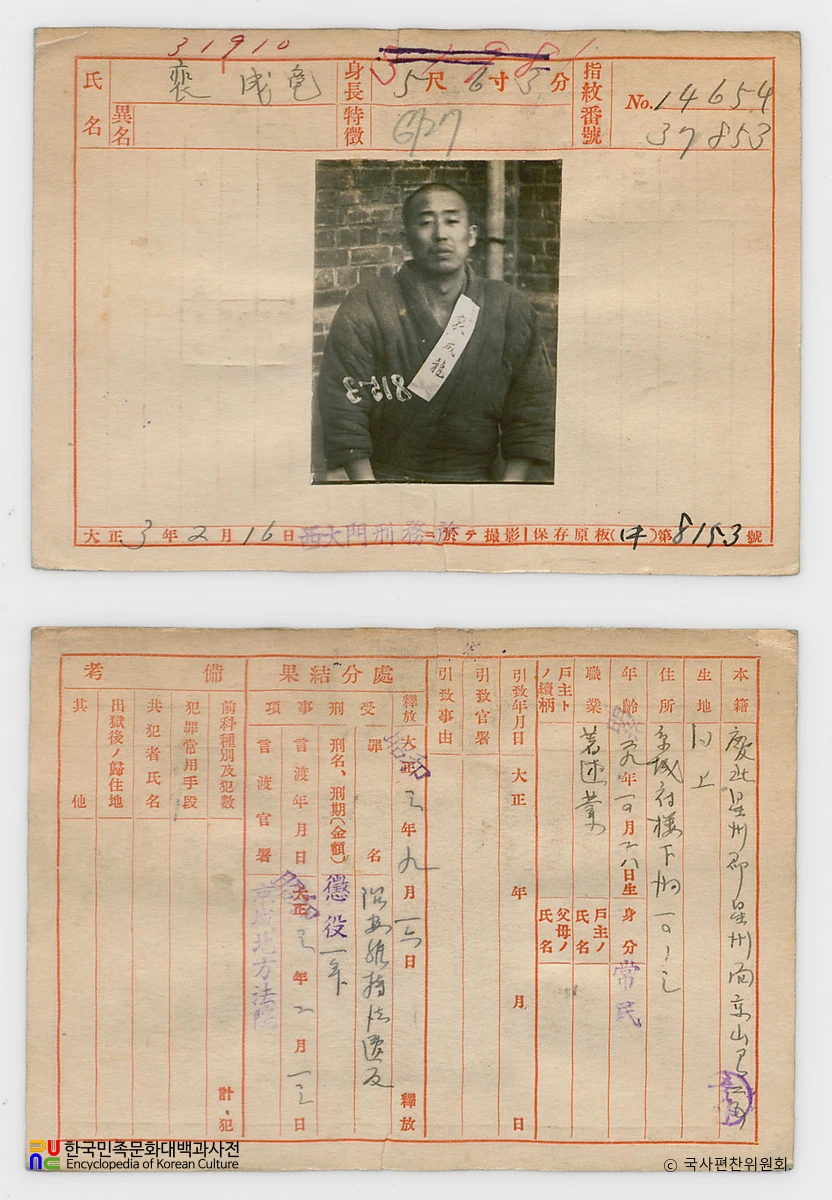 31910
氏名
裵成竜
異名
身長
5尺6寸3分
特徴
6/27
指紋番號
No. 14654
37853
裵成龍
8153
大正3年2月16日西大門刑務所ニ於テ撮影
保存原板(中)第8153號
本籍
慶北星州郡星州面京山
生地
同上
住所
京城府楼下洞一〇一三
年齢
九年一〇月二八日生
身分
常民
職業
著述業
戸主トノ續柄
戸主ノ氏名
父母ノ氏名
引致年月日 大正 年 月 日
引致官署
引致事由
處分結果
釋放 大正 昭和 三年九月一六日 釋放
受刑事項
罪名
治安維持法違反
刑名、刑期(金額)
懲役一年
言渡年月日
大正 昭和 三年二月一三日
言渡官署
京城地方法院
備考
前科種別及犯數
計、犯
犯罪常用手段
共犯者氏名
出獄後ノ歸住地
其他
한국민족문화대백과사전
Encyclopedia of Korean Culture
© 국사편찬위원회